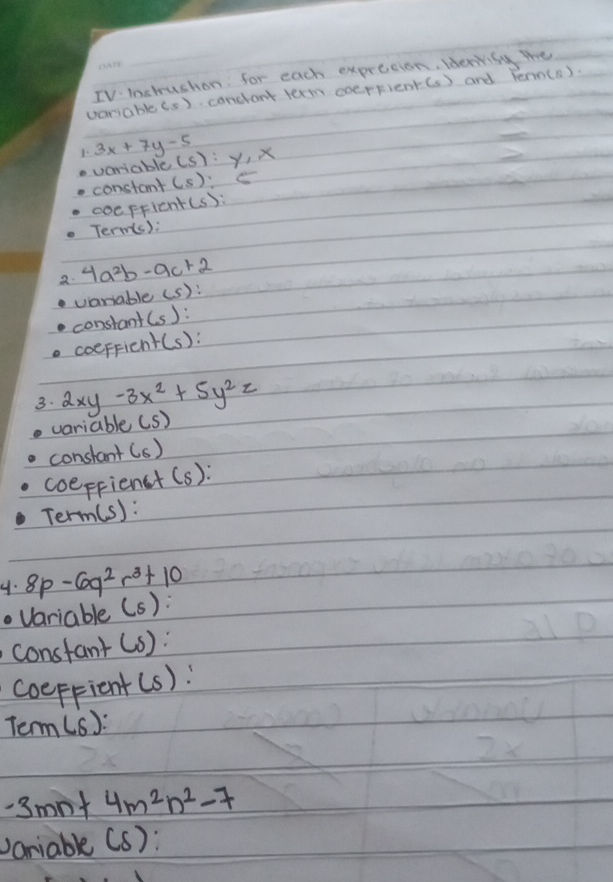 DATE
IV. Instrushon: for each exprecion. Identify the
variable (s). constant term coeffient (s) and Term(s).
1. 3x + 7y - 5
• variable (s): y, x
• constant (s): 5
• coeffient (s):
• Term(s):
2. 4a²b - 9c + 2
• variable (s):
• constant (s):
• coeffient (s):
3. 2xy - 3x² + 5y²z
• variable (s)
• constant (s)
• coeffienst (s):
• Term(s):
4. 8p - 6q²r³ + 10
• Variable (s):
• Constant (s):
• Coeffient (s):
Term (s):
-3mn + 4m²n² - 7
Variable (s):